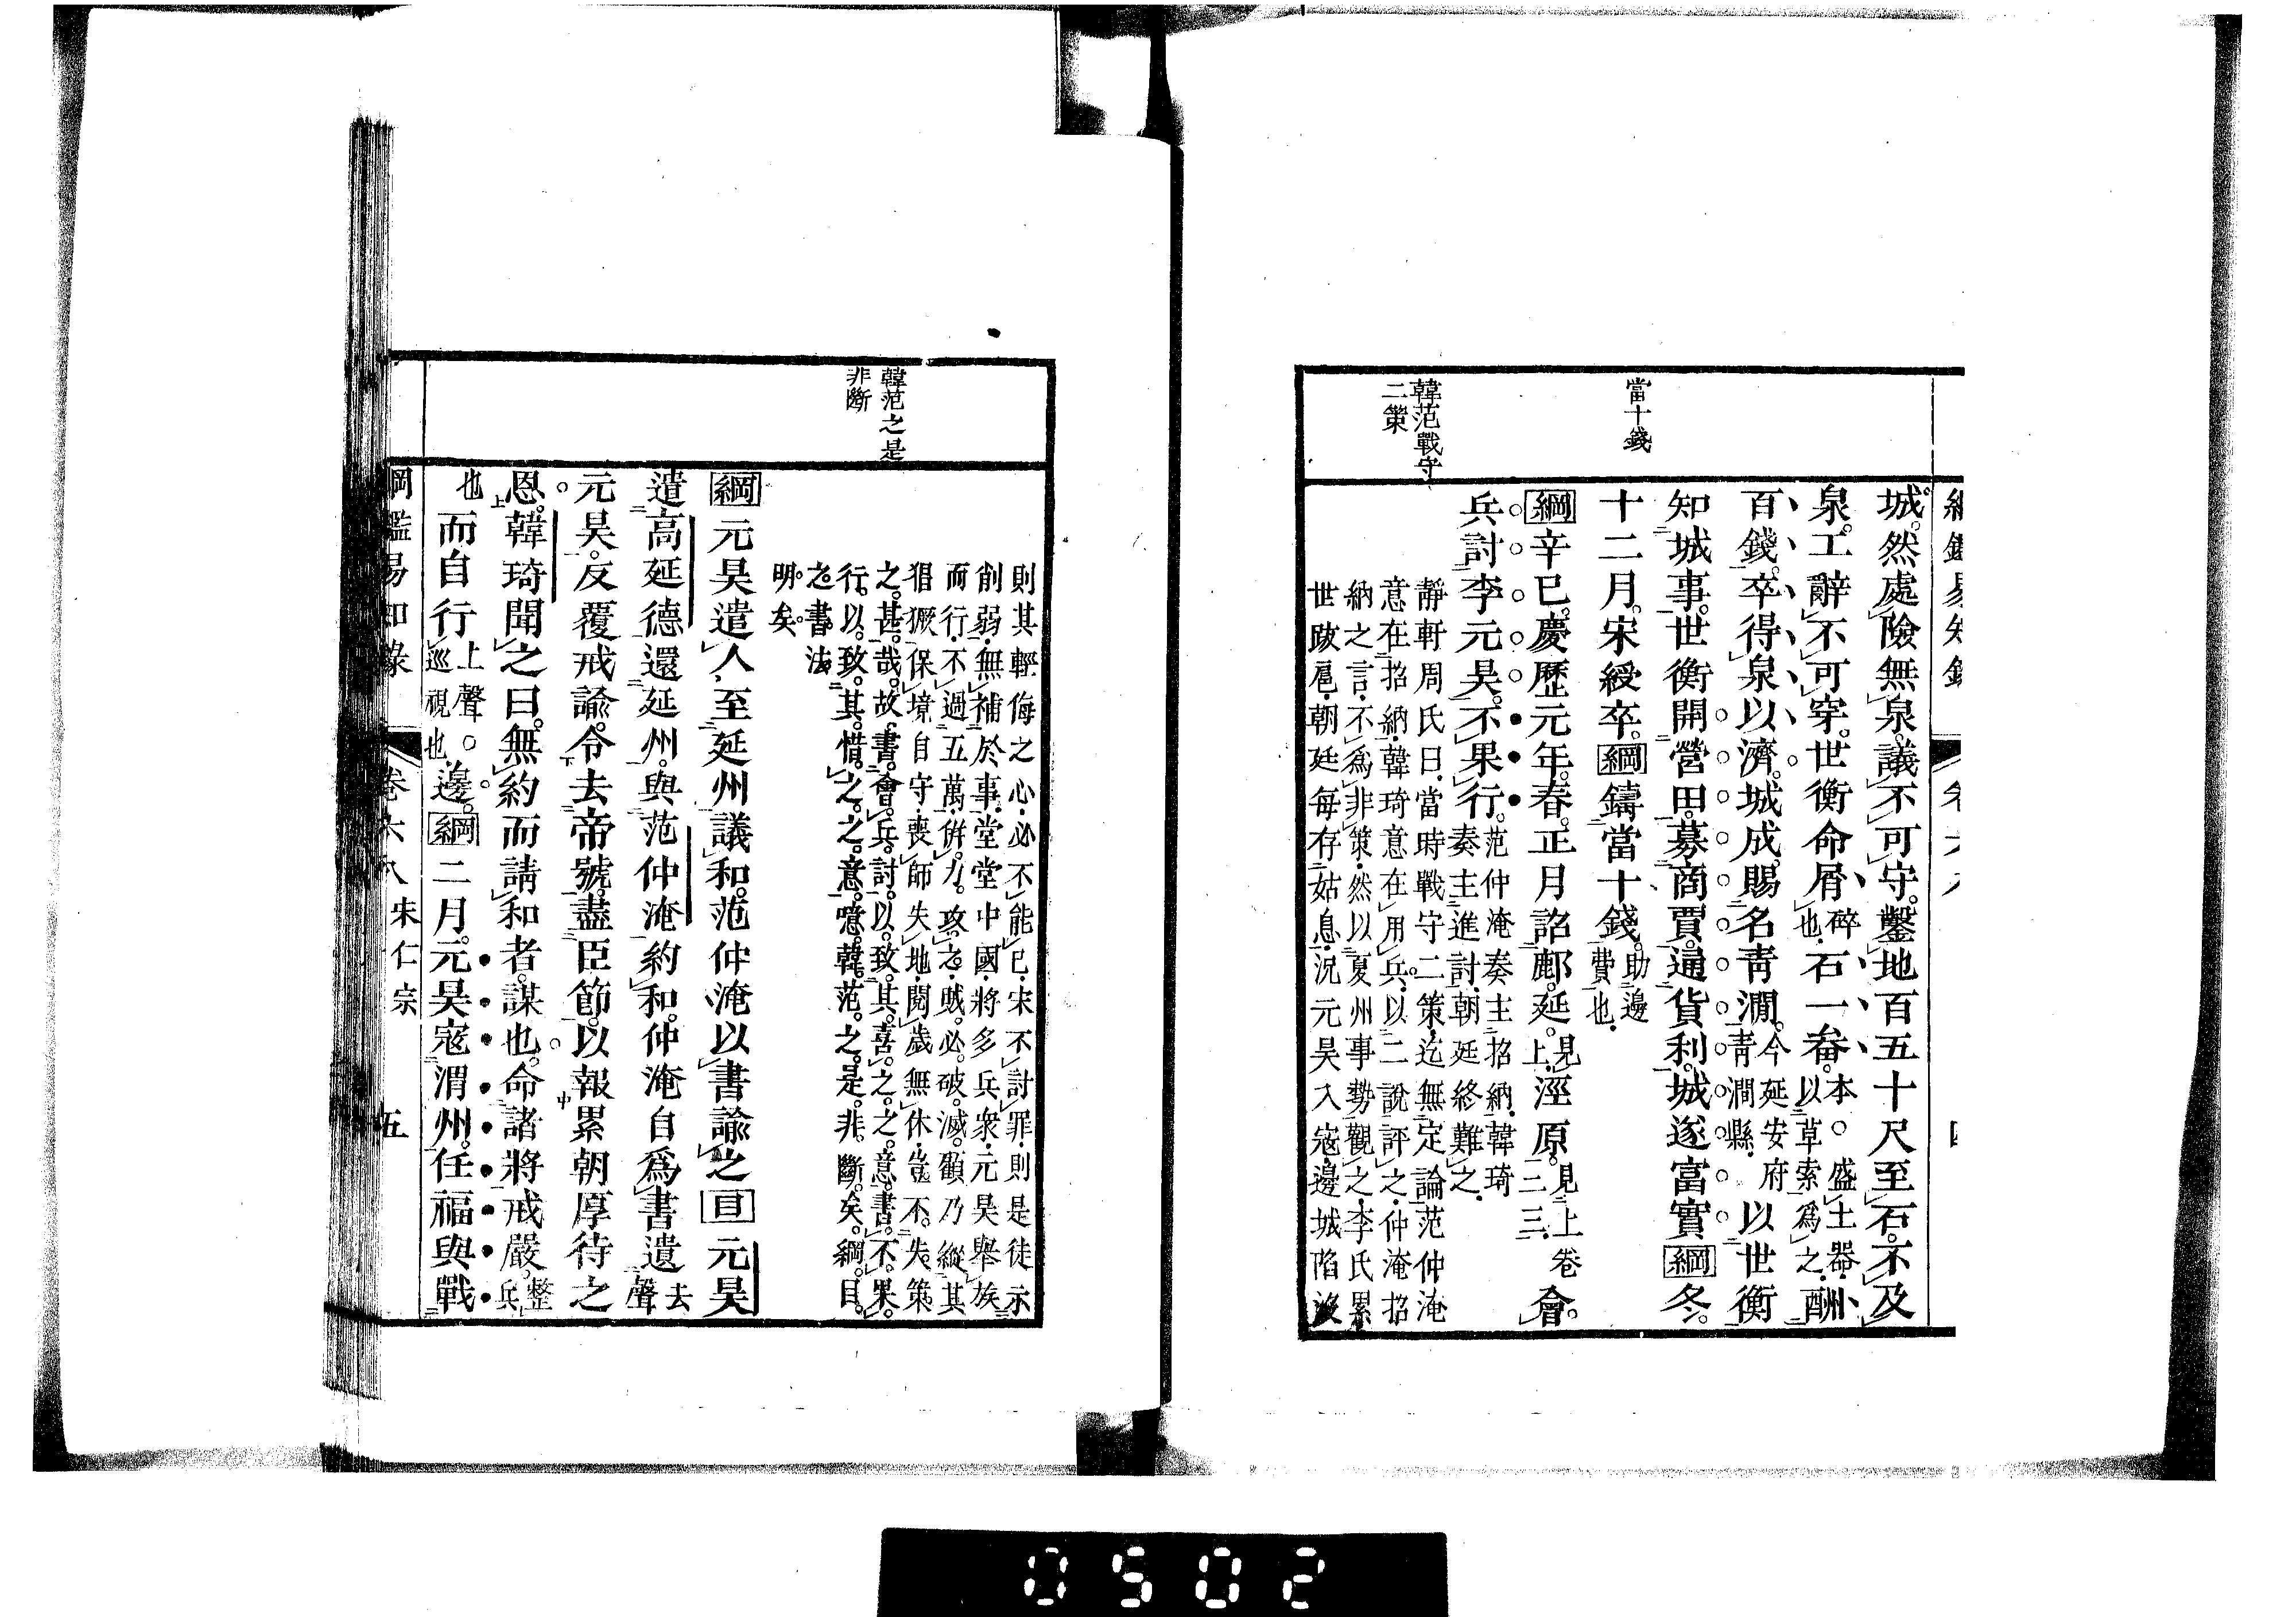 綱鑑易知錄 卷六八 四
當十錢
韓范戰守
二策
城。然處險無泉。議不可守。鑿地百五十尺至石。不及
泉。工辭不可穿。世衡命屑碎也。石一畚。本○盛土器。以草索爲之。酬
百錢。卒得泉以濟。城成。賜名靑澗。今延安府靑澗縣。以世衡
知城事。世衡開營田。募商賈。通貨利。城遂富實。綱冬。
十二月。宋綬卒。綱鑄當十錢。助邊費也。
綱辛巳。慶歷元年。春。正月。詔鄜延。見上。涇原。見上卷二三。會
兵討李元昊。不果行。范仲淹奏主招納。韓琦奏主進討。朝廷終難之。
靜軒周氏曰。當時戰守二策。迄無定論。范仲淹
意在招納。韓琦意在用兵。以二說評之。仲淹招
納之言。不爲非策。然以夏州事勢觀之。李氏累
世跋扈。朝廷每存姑息。況元昊入寇。邊城陷沒
韓范之是
非斷
則其輕侮之心。必不能已。宋不討罪。則是徒示
削弱。無補於事。堂堂中國。將多兵衆。元昊舉族
而行。不過五萬。倂力攻之。賊必破滅。顧乃縱其
猖獗。保境自守。喪師失地。閱歲無休。豈不失策
之甚哉。故書會兵討。以致其喜之之意。書不果
行。以致其惜之之意。噫。韓范之是非斷矣。綱目
之書法
明矣。
綱元昊遣人至延州議和。范仲淹以書諭之目元昊
遣高延德還延州。與范仲淹約和。仲淹自爲書遺去聲
元昊。反覆戒諭。令去帝號。盡臣節。以報累朝厚待之
恩。韓琦聞之曰。無約而請和者。謀也。命諸將戒嚴。整兵
也上而自行上聲。○巡視也。邊。綱二月。元昊寇渭州。任福與戰
綱鑑易知錄 卷六八 宋仁宗 五
0502